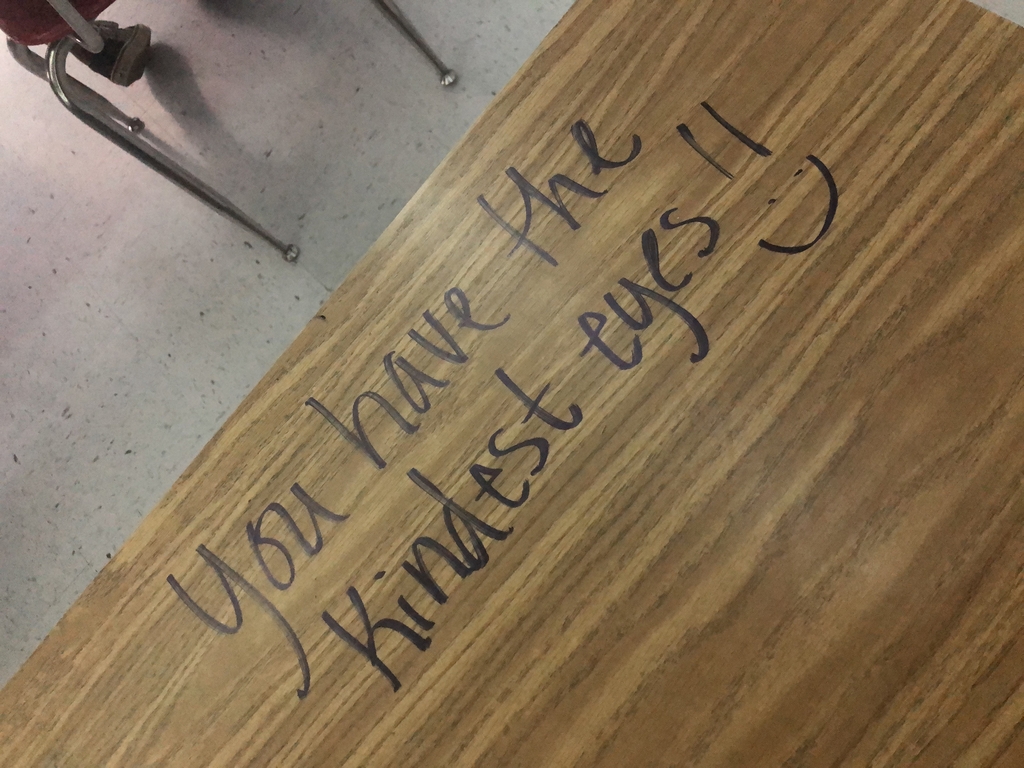 you have the
kindest eyes !! :)